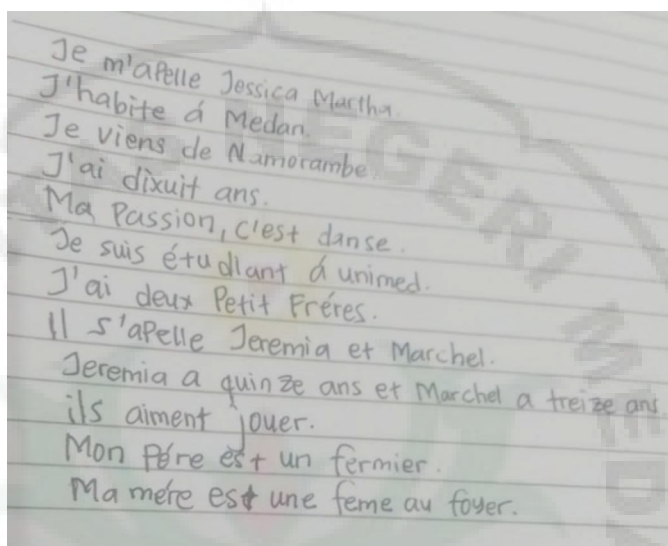 Je m'apelle Jessica Martha.
J'habite á Medan.
Je viens de Namorambe.
J'ai dixuit ans.
Ma Passion, c'est danse.
Je suis étudiant á unimed.
J'ai deux Petit Fréres.
Il s'apelle Jeremia et Marchel.
Jeremia a quinze ans et Marchel a treize ans
ils aiment jouer.
Mon Pére est un fermier.
Ma mére est une feme au foyer.